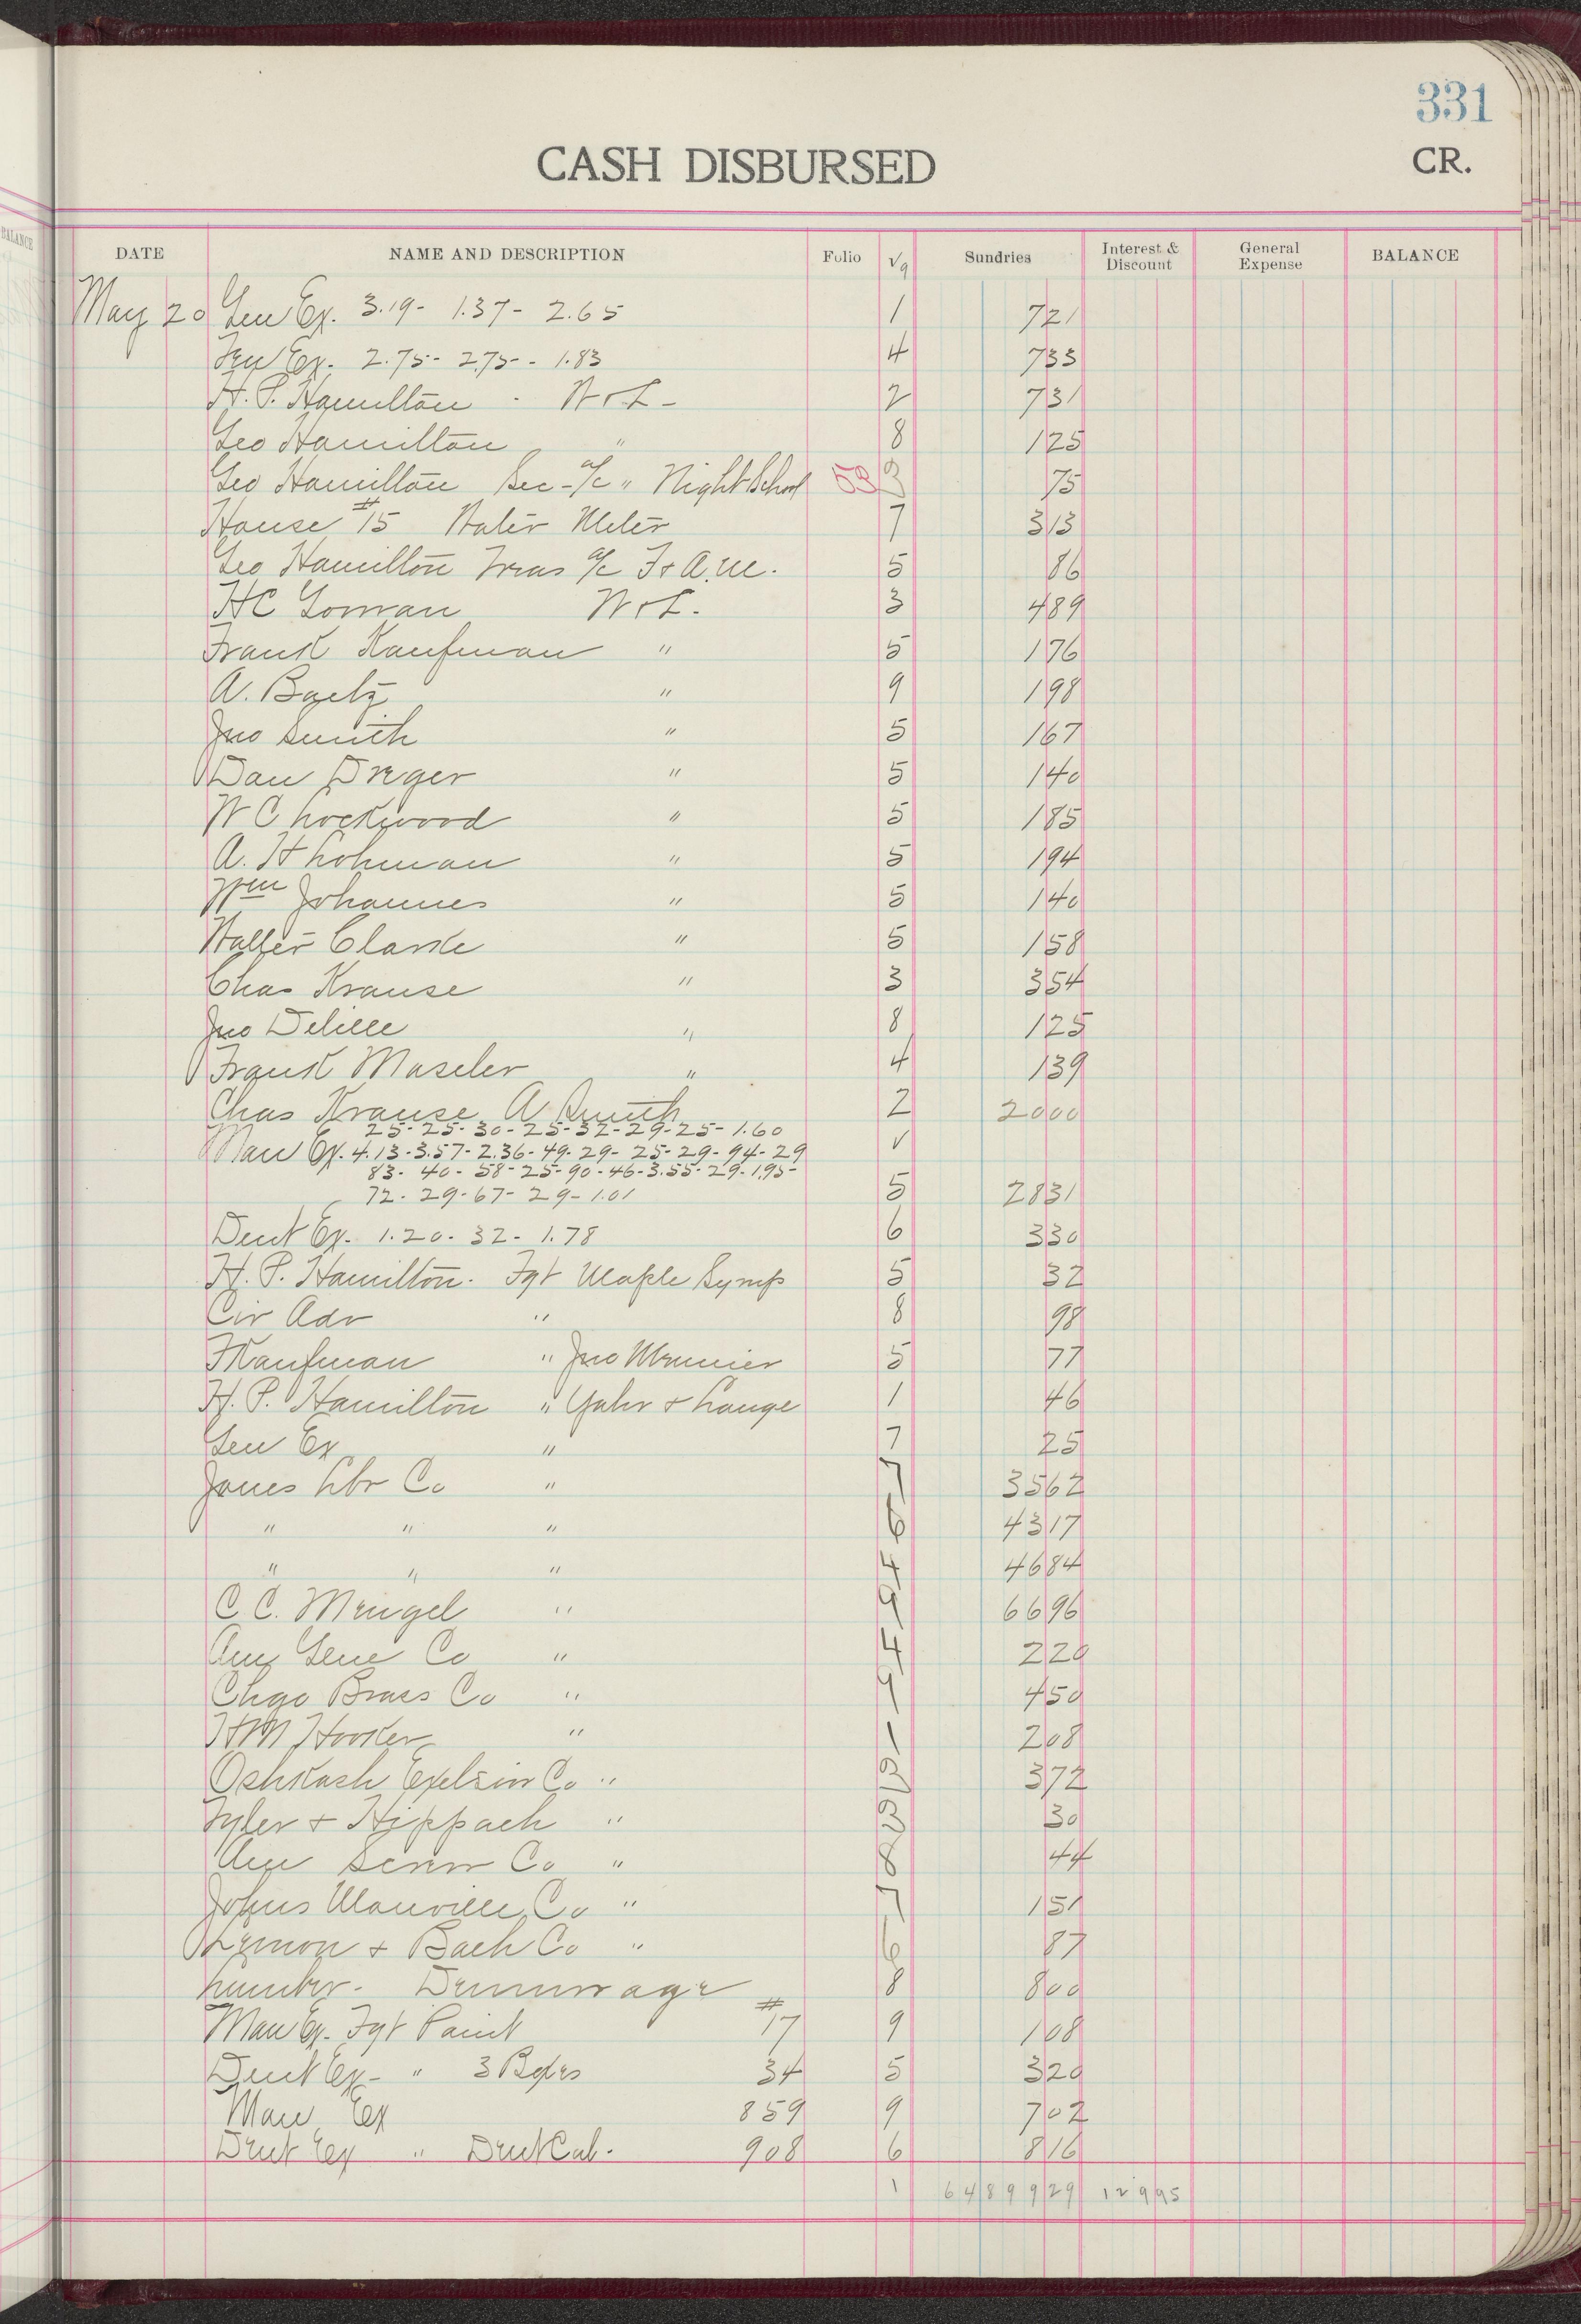 BALANCE
331
CASH DISBURSED CR.
DATE NAME AND DESCRIPTION Folio √9 Sundries Interest & Discount General Expense BALANCE
May 20 Gen Ex. 3.19- 1.37- 2.65 1 7 21
Gen Ex. 2.75- 2.75- - 1.83 4 7 33
H. P. Hamilton - W & L - 2 7 31
Geo Hamilton " 8 1 25
Geo Hamilton Sec - a/c " Night School 53 3 75
House #15 Water Meter 7 3 13
Geo Hamilton Treas a/c F & A.M. 5 86
HC Gorman W & L. 3 4 89
Frank Kaufman " 5 1 76
A. Baetz " 9 1 98
Jno Smith " 5 1 67
Dan Dreger " 5 1 40
W C Lockwood " 5 1 85
A. H Lohman " 5 1 94
Wm Johannes " 5 1 40
Walter Clarke " 5 1 58
Chas Krause " 3 3 54
Jno Delille " 8 1 25
Frank Maseler " 4 1 39
Chas Krause A Smith 2 20 00
25- 25- 30- 25- 32- 29- 25- 1.60
Man Ex. 4.13- 3.57- 2.36- 49- 29- 25- 29- 94- 29 √
83- 40- 58- 25- 90- 46- 3.55- 29- 1.95-
72- 29- 67- 29- 1.01 5 28 31
Dent Ex. 1.20. 32- 1.78 6 3 30
H. P. Hamilton. Fgt Maple Syrup 5 32
Cir Adv " 8 98
F Kaufman " Jno Meunier 5 77
H. P. Hamilton " Yahr & Lange 1 46
Gen Ex " 7 25
Jones Lbr Co " 7 35 62
" " " 6 43 17
" " " 4 46 84
C C. Mengel " 9 66 96
Am Glue Co " 4 2 20
Chgo Brass Co " 9 4 50
H M Hooker " 1 2 08
Oshkosh Exelsior Co " 3 3 72
Tyler & Hippach " 3 30
Am Screw Co " 8 44
Johns Manville Co " 7 1 51
Lemon & Bach Co " 6 87
Lumber - Demurrage 8 8 00
Man Ex. Fgt Paint #17 9 1 08
Dent Ex - " 3 Boxes 34 5 3 20
Man Ex 859 9 7 02
Dent Ex " Dent Cab. 908 6 8 16
1 64899 29 129 95